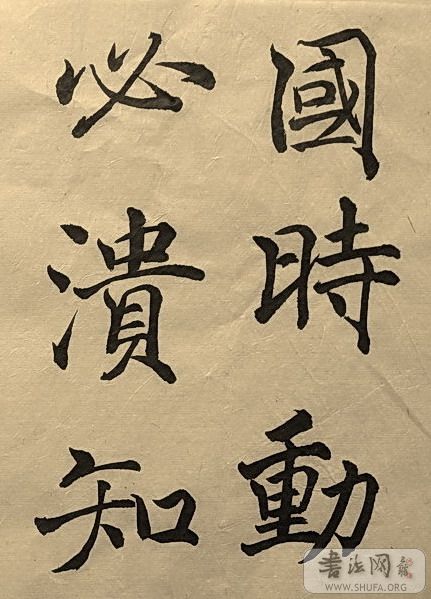 國時動
必潰知
書法网
WWW.SHUFA.ORG